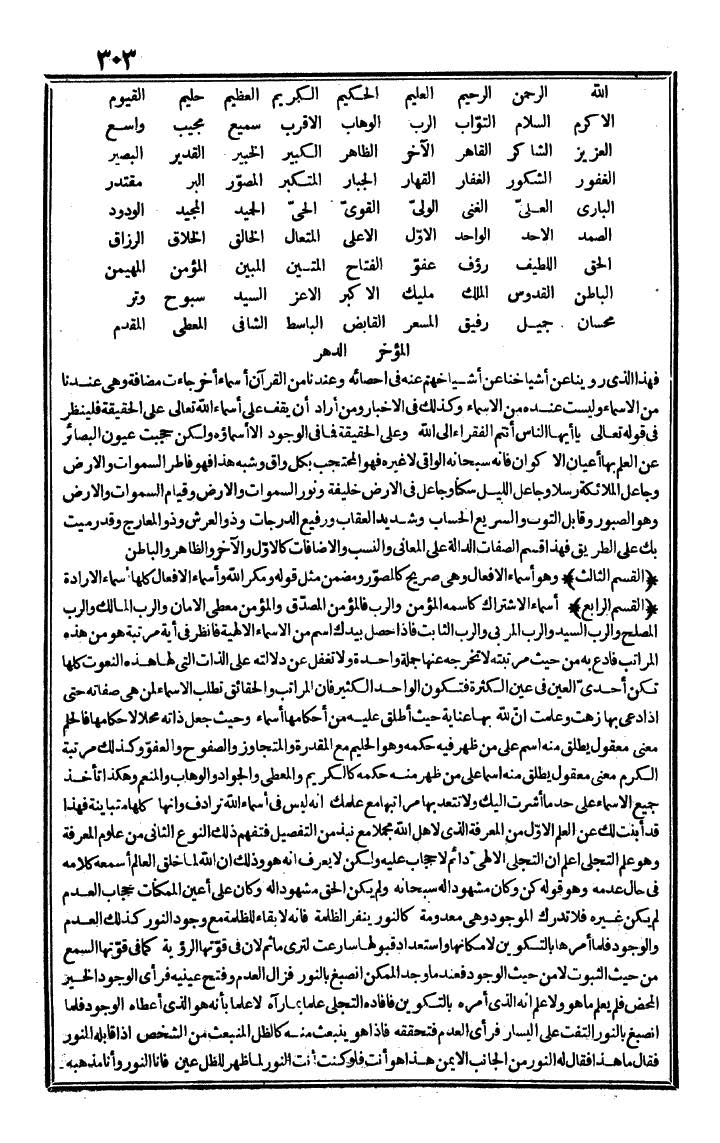 ٣٠٣
الله الرحمن الرحيم العليم الحكيم الكريم العظيم حليم القيوم
الاكرم السلام التوّاب الرب الوهاب الاقرب سميع مجيب واسع
العزيز الشاكر القاهر الآخر الظاهر الكبير الخبير القدير البصير
الغفور الشكور الغفار القهار الجبار المتكبر المصوّر البر مقتدر
البارى العلىّ الغنى الولىّ القوىّ الحىّ الحيد المجيد الودود
الصمد الاحد الواحد الاوّل الاعلى المتعال الخالق الخلاق الرزاق
الحق اللطيف رؤف عفوّ الفتاح المتين المبين المؤمن المهيمن
الباطن القدوس الملك مليك الاكبر الاعز السيد سبوح وتر
محسان جميل رفيق المسعر القابض الباسط الشافى المعطى المقدم
المؤخر الدهر
فهذا الذى رويناعن أشياخنا عن أشياخهم عنه فى احصائه وعندنا من القرآن أسماء أخر جاءت مضافة وهى عندنا
من الاسماء وليست عنده من الاسماء وكذلك فى الاخبار ومن أراد أن يقف على أسماء الله تعالى على الحقيقة فلينظر
فى قوله تعالى يا أيها الناس أنتم الفقراء الى الله وعلى الحقيقة فما فى الوجود الا أسماؤه ولكن حجبت عيون البصائر
عن العلم بها أعيان الاكوان فانه سبحانه الواقى لا غيره فهو المحتجب بكل واق وشبه هذا فهو فاطر السموات والارض
وجاعل الملائكة رسلا وجاعل الليل سكنا وجاعل فى الارض خليفة ونور السموات والارض وقيام السموات والارض
وهو الصبور وقابل التوب والسريع الحساب وشديد العقاب ورفيع الدرجات وذو العرش وذو المعارج وقد رميت
بك على الطريق فهذا قسم الصفات الدالة على المعانى والنسب والاضافات كالاوّل والآخر والظاهر والباطن
﴿القسم الثالث﴾ وهو أسماء الافعال وهى صريح كالمصوّر ومضمن مثل قوله ومكر الله وأسماء الافعال كلها أسماء الارادة
﴿القسم الرابع﴾ أسماء الاشتراك كاسمه المؤمن والرب فالمؤمن المصدّق والمؤمن معطى الامان والرب المالك والرب
المصلح والرب السيد والرب المربى والرب الثابت فاذا حصل بيدك اسم من الاسماء الالهية فانظر فى أية مرتبة هو من هذه
المراتب فادع به من حيث مرتبته لا تخرجه عنها جملة واحدة ولا تغفل عن دلالته على الذات التى لها هذه النعوت كلها
تكن أحدىّ العين فى عين الكثرة فتكون الواحد الكثير فان المراتب والحقائق تطلب الاسماء لمن هى صفاته حتى
اذا دعى بها زهت وعلمت انّ لله بها عناية حيث أطلق عليه من أحكامها أسماء وحيث جعل ذاته محلا لاحكامها فالحلم
معنى معقول يطلق منه اسم على من ظهر فيه حكمه وهو الحليم مع المقدرة والمتجاوز والصفوح والعفوّ وكذلك مرتبة
الكرم معنى معقول يطلق منه اسما على من ظهر منه حكمه كالكريم والمعطى والجواد والوهاب والمنعم وهكذا تأخذ
جميع الاسماء على حد ما أشرت اليك ولا تتعد بها مراتبها مع علمك انه ليس فى أسماء الله ترادف وانها كلها متباينة فهذا
قد أبنت لك عن العلم الاوّل من المعرفة الذى لاهل الله مجملا مع نبذ من التفصيل فتفهم ذلك النوع الثانى من علوم المعرفة
وهو علم التجلى اعلم ان التجلى الالهىّ دائم لا حجاب عليه ولكن لا يعرف انه هو وذلك ان الله لما خلق العالم أسمعه كلامه
فى حال عدمه وهو قوله كن وكان مشهودا له سبحانه ولم يكن الحق مشهودا له وكان على أعين الممكنات حجاب العدم
لم يكن غيره فلا تدرك الموجود وهى معدومة كالنور ينفر الظلمة فانه لا بقاء للظلمة مع وجود النور كذلك العدم
والوجود فلما أمرها بالتكوين لامكانها واستعداد قبولها سارعت لترى ما ثم لان فى قوّتها الرؤية كما فى قوّتها السمع
من حيث الثبوت لا من حيث الوجود فعند ما وجد الممكن انصبغ بالنور فزال العدم وفتح عينيه فرأى الوجود الخير
المحض فلم يعلم ما هو ولا علم انه الذى أمره بالتكوين فافاده التجلى علما بما رآه لا علما بأنه هو الذى أعطاه الوجود فلما
انصبغ بالنور التفت على اليسار فرأى العدم فتحققه فاذا هو ينبعث منه كالظل المنبعث من الشخص اذا قابله النور
فقال ما هذا فقال له النور من الجانب الايمن هذا هو أنت فلو كنت أنت النور لما ظهر للظل عين فانا النور وأنا مذهبه